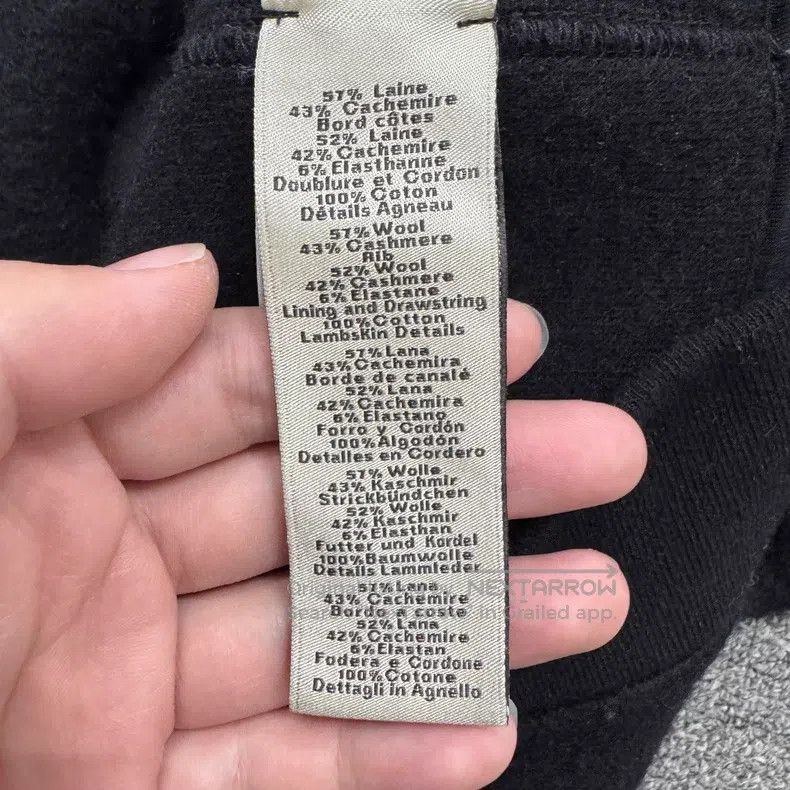 57% Laine
43% Cachemire
Bord côtes
52% Laine
42% Cachemire
6% Elasthanne
Doublure et Cordon
100% Coton
Détails Agneau
57% Wool
43% Cashmere
Rib
52% Wool
42% Cashmere
6% Elastane
Lining and Drawstring
100% Cotton
Lambskin Details
57% Lana
43% Cachemira
Borde de canalé
52% Lana
42% Cachemira
6% Elastano
Forro y Cordón
100% Algodón
Detalles en Cordero
57% Wolle
43% Kaschmir
Strickbündchen
52% Wolle
42% Kaschmir
6% Elasthan
Futter und Kordel
100% Baumwolle
Details Lammleder
57% Lana
43% Cachemire
Bordo a coste
52% Lana
42% Cachemire
6% Elastan
Fodera e Cordone
100% Cotone
Dettagli in Agnello
NEXTARROW
in Grailed app.